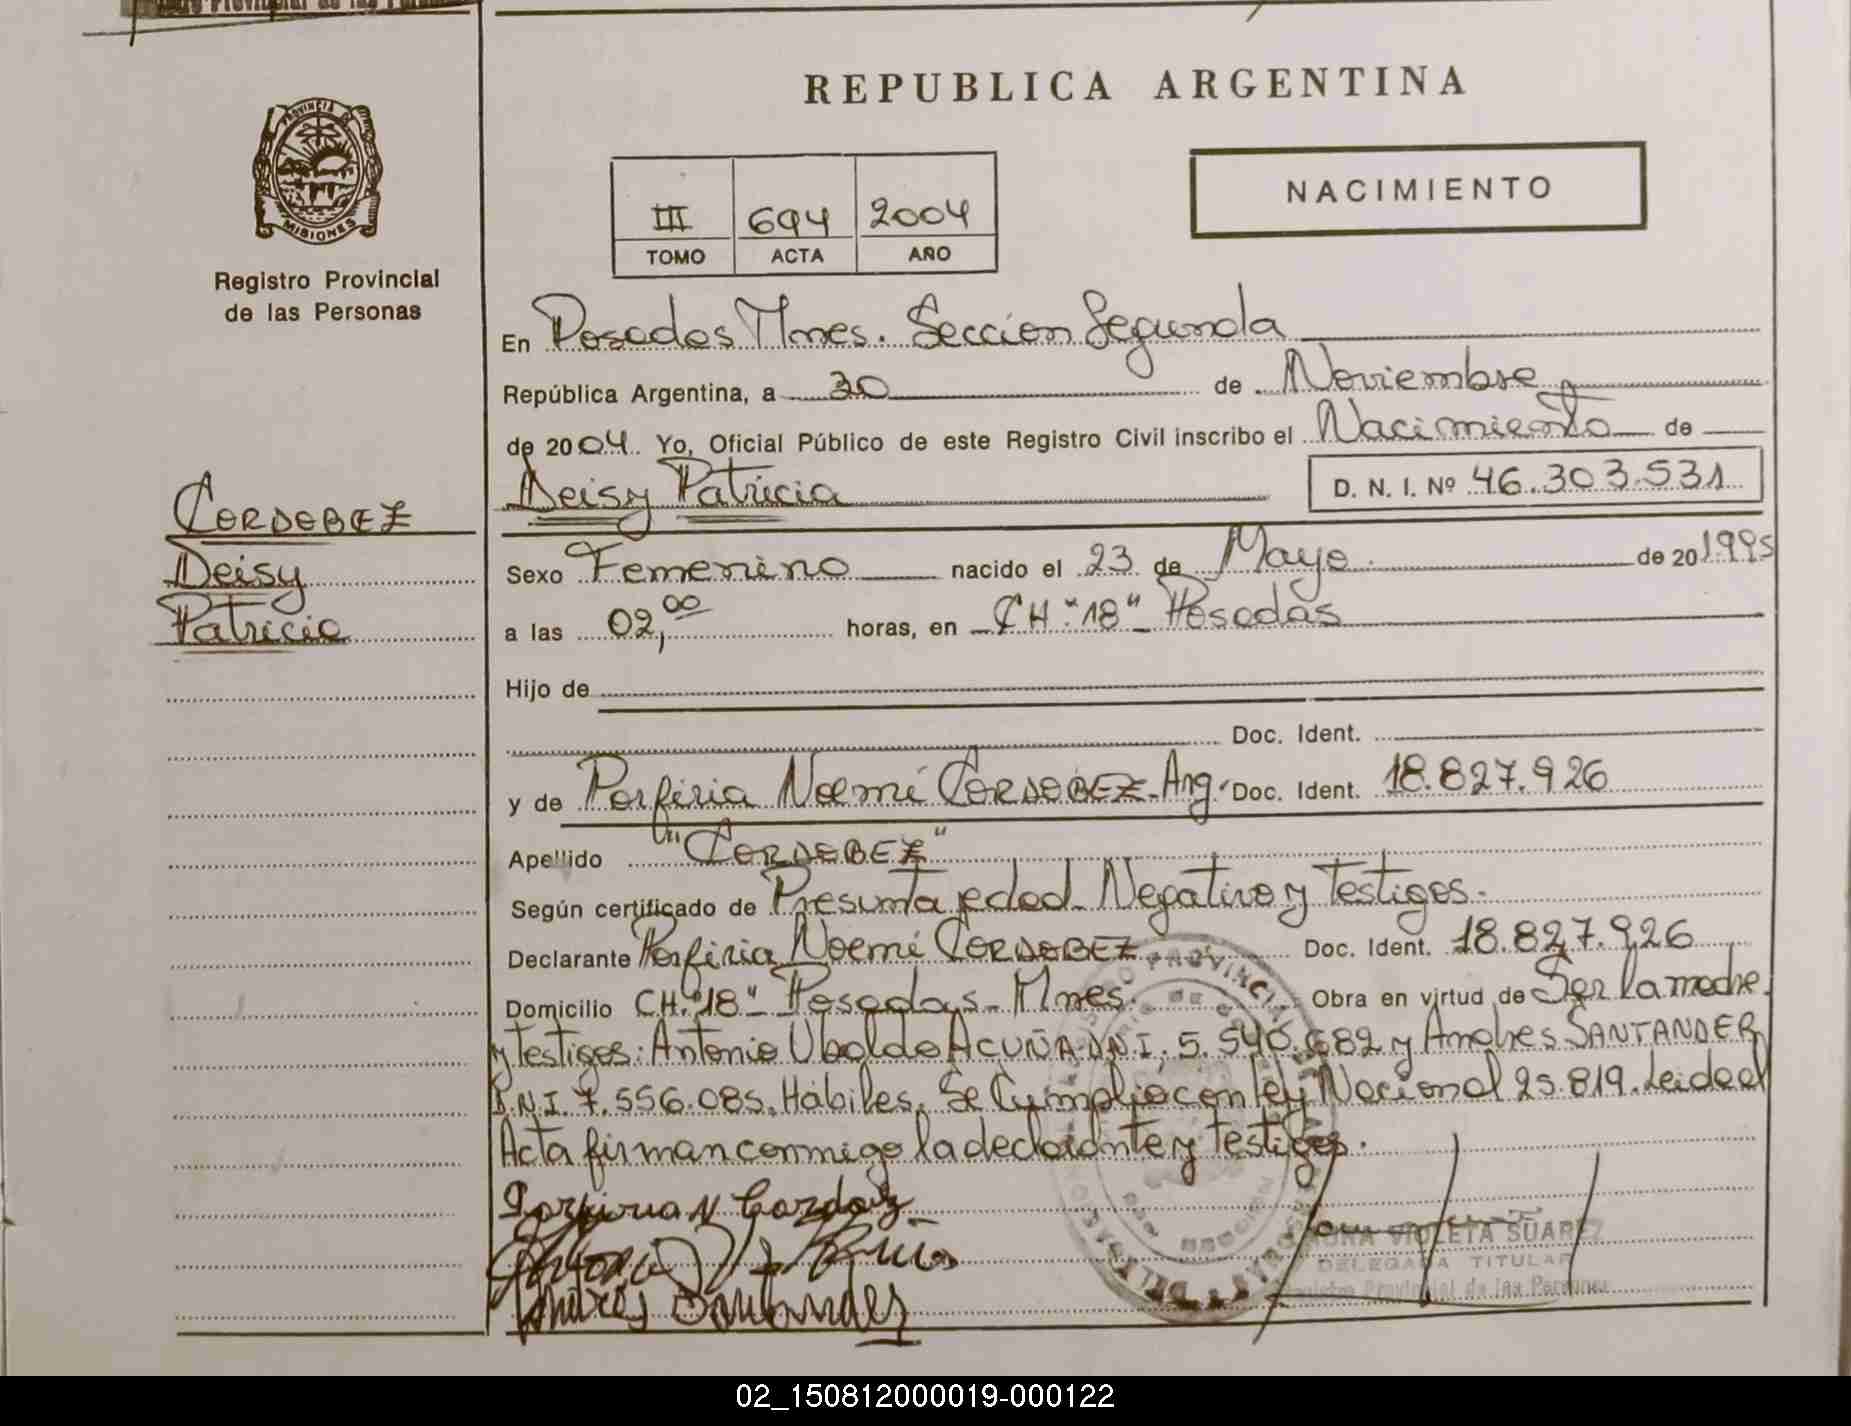 Registro Provincial de las Personas
REPUBLICA ARGENTINA
PROVINCIA DE
MISIONES
Registro Provincial
de las Personas
III 694 2004
TOMO ACTA AÑO
NACIMIENTO
En Posadas Mnes. Sección Segunda
República Argentina, a 30 de Noviembre
de 2004. Yo, Oficial Público de este Registro Civil inscribo el Nacimiento de
Deisy Patricia D. N. I. Nº 46.303.531
CORDOBEZ
Deisy
Patricia
Sexo Femenino nacido el 23 de Mayo de 20 1995
a las 02,00 horas, en CH "18" Posadas
Hijo de
Doc. Ident.
y de Porfiria Noemí CORDOBEZ - Arg. Doc. Ident. 18.827.926
Apellido "CORDOBEZ"
Según certificado de Presunta edad Negativo y Testigos.
Declarante Porfiria Noemí CORDOBEZ Doc. Ident. 18.827.926
Domicilio CH. "18" Posadas - Mnes. Obra en virtud de Ser la madre
y testigos: Antonio Ubaldo ACUÑA D.N.I. 5.540.682 y Andres SANTANDER
D.N.I. 7.556.085. Hábiles. Se Cumplio con ley Nacional 25.819. Leida el
Acta firman conmigo la declarante y Testigos.
Porfiria N Cordobez
VIOLETA SUAREZ
DELEGADA TITULAR
Registro Provincial de las Personas
02_150812000019-000122